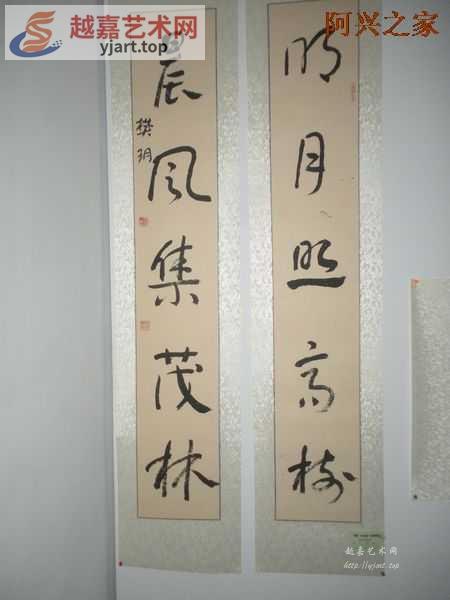 越嘉艺术网
yjart.top
阿兴之家
明月照高树
晨风集茂林
樊玥
越嘉艺术网
http://yjart.top